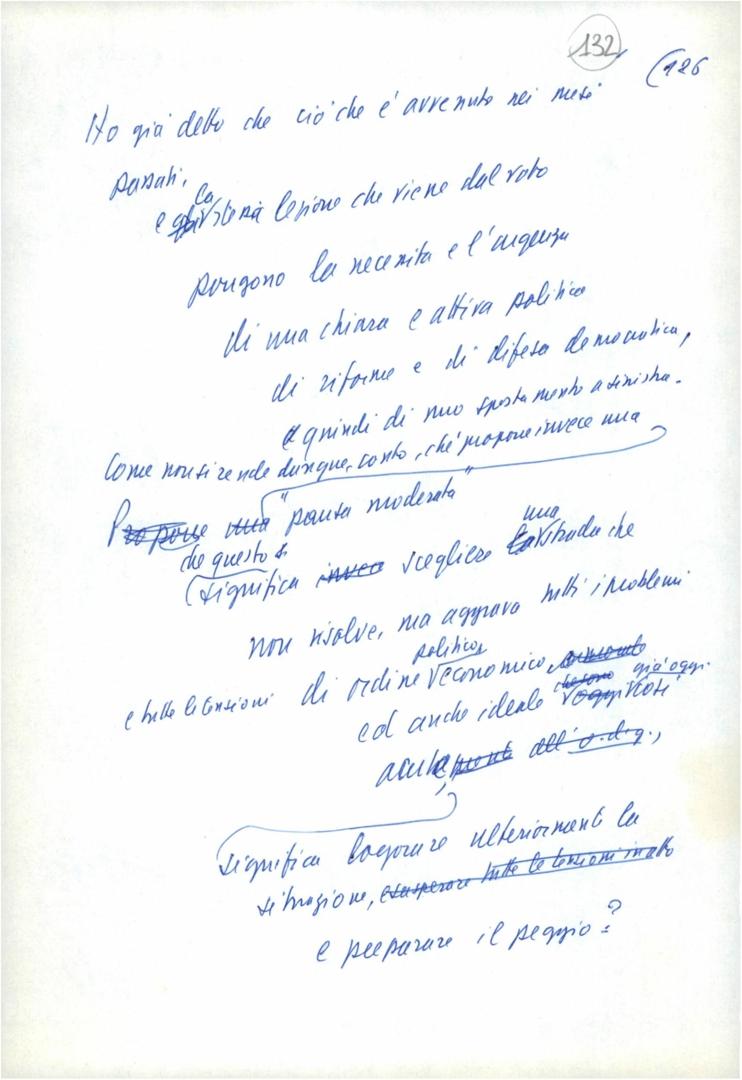 132
(126
Ho già detto che ciò che è avvenuto nei mesi
passati,
la
e stessa lezione che viene dal voto
pongono la necessità e l'urgenza
di una chiara e attiva politica
di riforme e di difesa democratica,
e quindi di uno spostamento a sinistra.
Come non si rende dunque conto, chi propone invece una
Propone una "pausa moderata"
che questo una
significa invece scegliere la strada che
non risolve, ma aggrava tutti i problemi
politico,
e tutte le tensioni di ordine economico,
già oggi
ed anche ideale oggi così
acute all'o.d.g.,
significa logorare ulteriormente la
situazione, esasperare tutte le tensioni in atto
e preparare il peggio?